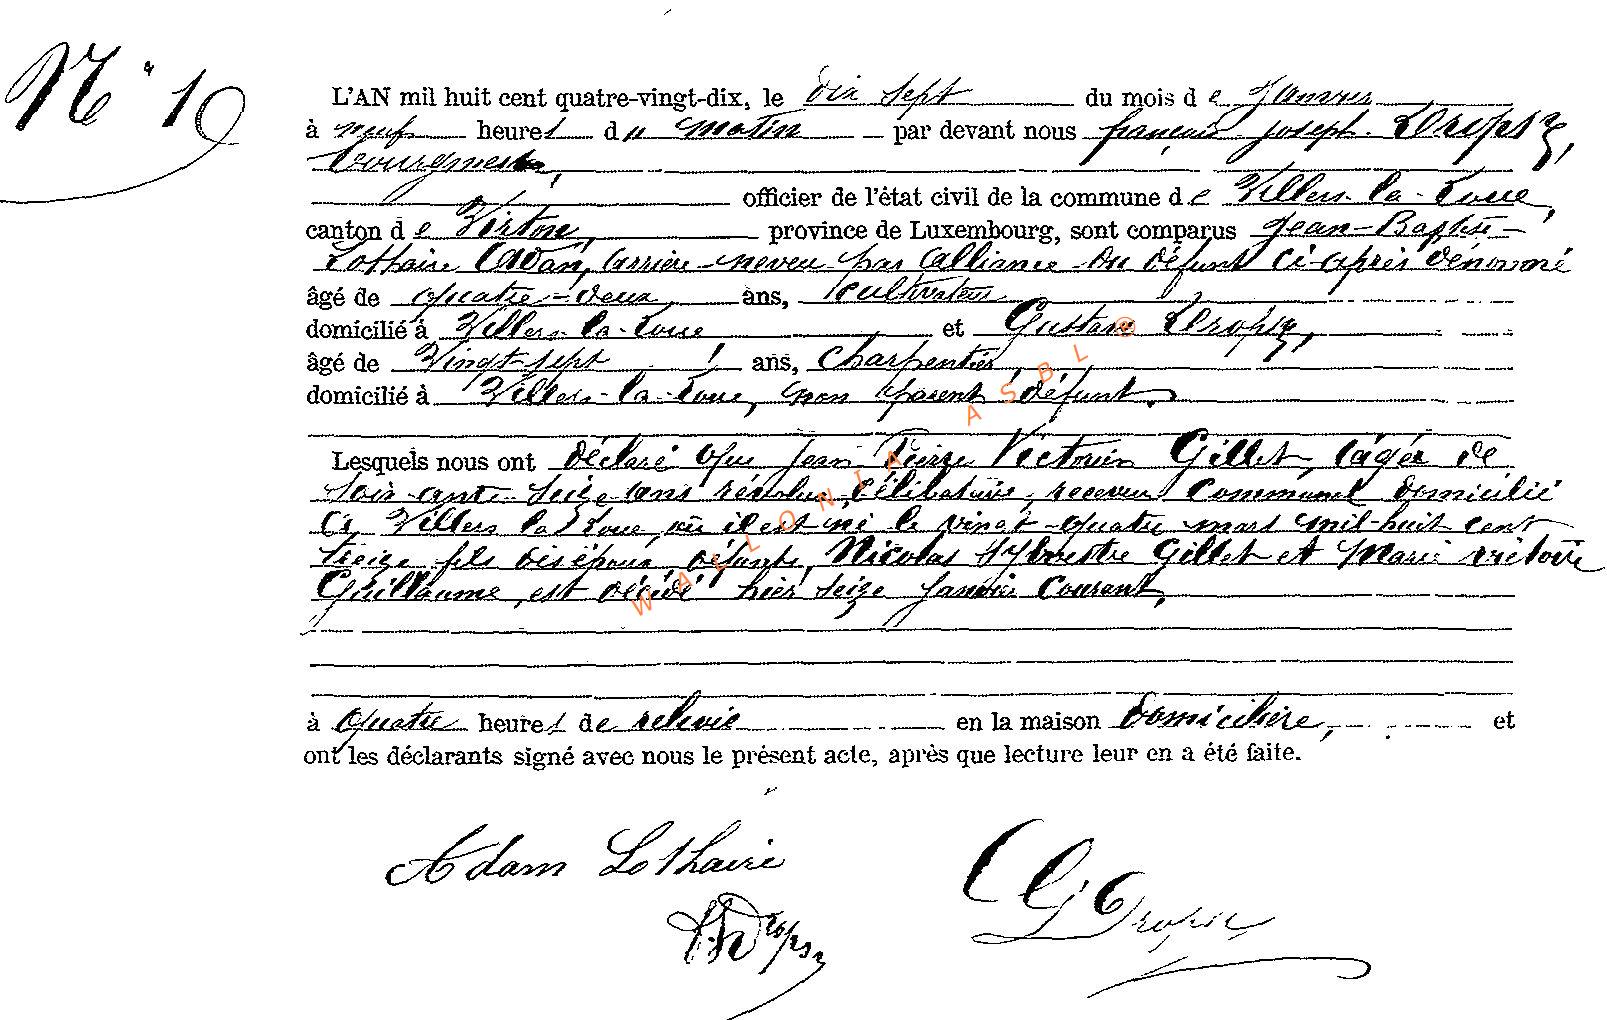 N° 19
L'AN mil huit cent quatre-vingt-dix, le dix sept du mois de Janvier
à neuf heures du matin par devant nous françois joseph Dropsy,
bourgmestre,
officier de l'état civil de la commune de Villers-la-Loue,
canton de Virton, province de Luxembourg, sont comparus Jean-Baptiste-
Lothaire Adam, arrière-neveu par alliance du défunt ci-après dénommé
âgé de quatre-deux ans, cultivateur
domicilié à Villers-la-Loue et Gustave Dropsy,
âgé de Vingt sept ans, Charpentier,
domicilié à Villers-la-Loue, non parent défunt.
Lesquels nous ont déclaré que Jean Pierre Victorin Gillet, âgé de
soixante seize ans révolus, célibataire, receveur communal domicilié
à Villers la Loue, où il est né le vingt-quatre mars mil-huit cent
treize fils des époux défunts, Nicolas Sylvestre Gillet et Marie victoire
Guillaume, est décédé hier seize Janvier courant,
à quatre heures de relevée en la maison domicilière, et
ont les déclarants signé avec nous le présent acte, après que lecture leur en a été faite.
Adam Lothaire
G Dropsy
Dropsy
WALLONIA ASBL ©